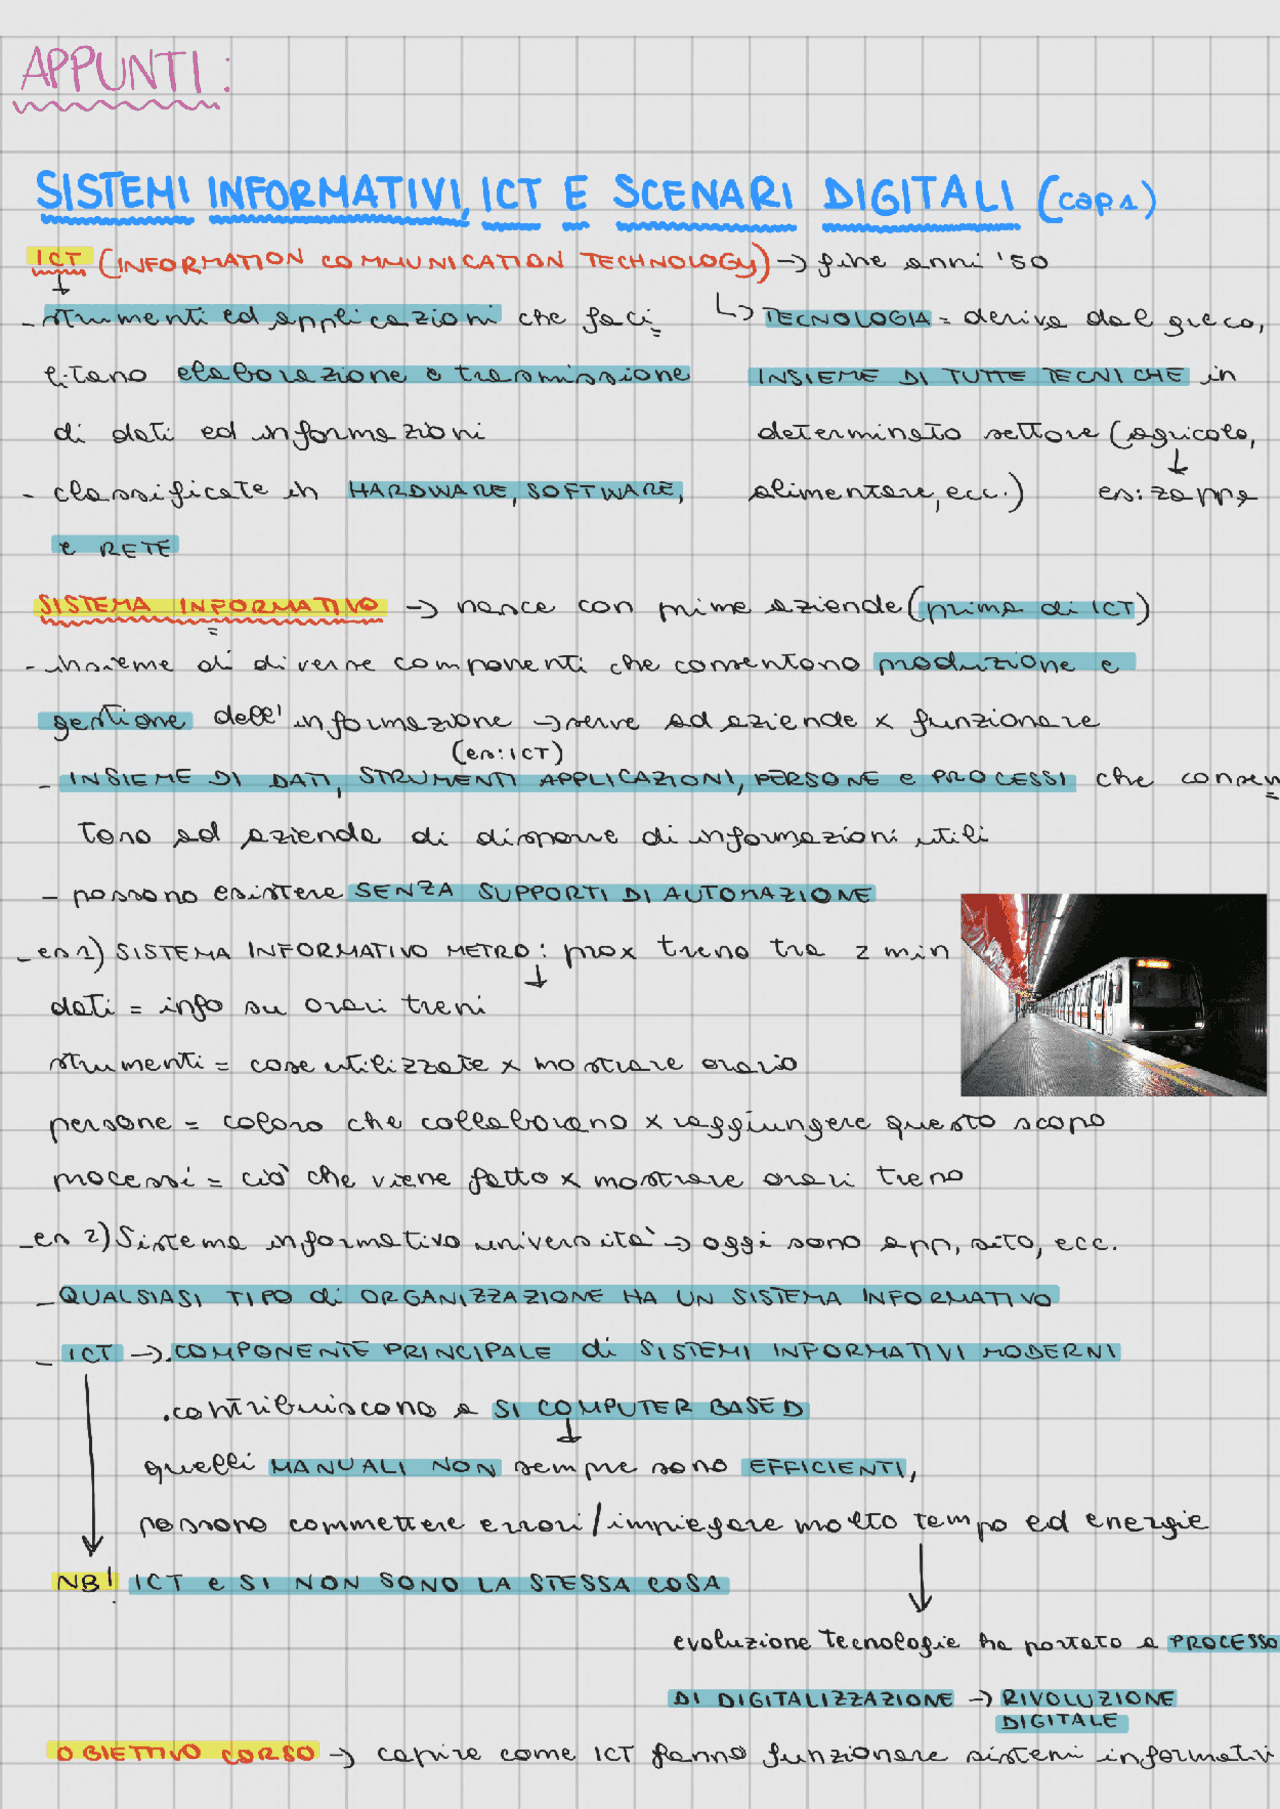 APPUNTI:
SISTEMI INFORMATIVI, ICT E SCENARI DIGITALI (cap.1)
ICT (INFORMATION COMMUNICATION TECHNOLOGY) → fine anni '50
- strumenti ed applicazioni che faci=
litano elaborazione e trasmissione
di dati ed informazioni
- classificate in HARDWARE, SOFTWARE,
e RETE
↳ TECNOLOGIA = deriva dal greco,
INSIEME DI TUTTE TECNICHE in
determinato settore (agricolo,
alimentare, ecc.) es: zappa
SISTEMA INFORMATIVO → nasce con prime aziende (prima di ICT)
- insieme di diverse componenti che consentono produzione e
gestione dell'informazione → serve ad aziende x funzionare
(es: ICT)
- INSIEME DI DATI, STRUMENTI APPLICAZIONI, PERSONE e PROCESSI che consen=
tono ad azienda di disporre di informazioni utili
- possono esistere SENZA SUPPORTI DI AUTOMAZIONE
- es 1) SISTEMA INFORMATIVO METRO: prox treno tra 2 min
dati = info su orari treni
strumenti = cose utilizzate x mostrare orario
persone = coloro che collaborano x raggiungere questo scopo
processi = ciò che viene fatto x mostrare orari treno
- es 2) Sistema informativo università → oggi sono app, sito, ecc.
- QUALSIASI TIPO di ORGANIZZAZIONE HA UN SISTEMA INFORMATIVO
- ICT → . COMPONENTE PRINCIPALE di SISTEMI INFORMATIVI MODERNI
. contribuiscono a SI COMPUTER BASED
quelli MANUALI NON sempre sono EFFICIENTI,
possono commettere errori/impiegare molto tempo ed energie
NB! ICT e SI NON SONO LA STESSA COSA
evoluzione tecnologie ha portato a PROCESSO
DI DIGITALIZZAZIONE → RIVOLUZIONE
DIGITALE
OBIETTIVO CORSO → capire come ICT fanno funzionare sistemi informativi